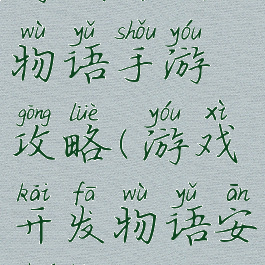 wù yǔ shǒu yóu
物语手游
gōng lüè yóu xì
攻略(游戏
kāi fā wù yǔ ān
开发物语安